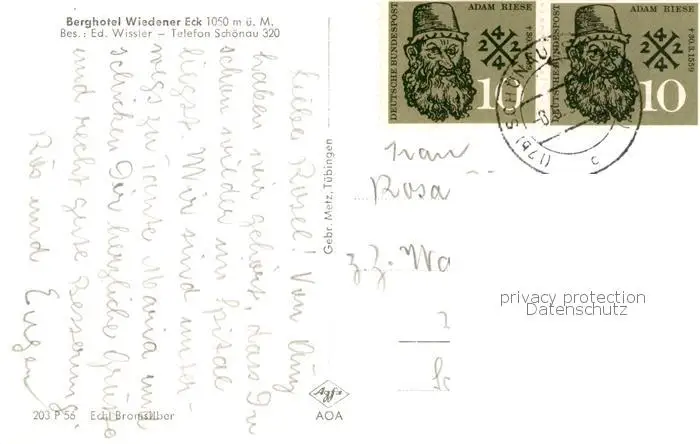 Berghotel Wiedener Eck 1050 m ü. M.
Bes.: Ed. Wissler – Telefon Schönau 320
Liebe Rosel! Von Anny
haben wir gehört, dass Du
schon wieder im Spital
liegst. Wir sind unter-
wegs zu Tante Maria und
schicken Dir herzliche Grüsse
und recht gute Besserung.
und Eugen
Gebr. Metz, Tübingen
203 P 56 Echt Bromsilber
Agfa
AOA
DEUTSCHE BUNDESPOST
ADAM RIESE
+30.3.1559
2 4 4 2
10
DEUTSCHE BUNDESPOST
ADAM RIESE
+30.3.1559
2 4 4 2
10
(17b) SCHÖN
Frau
Rosa
z. Z. Wa
privacy protection
Datenschutz